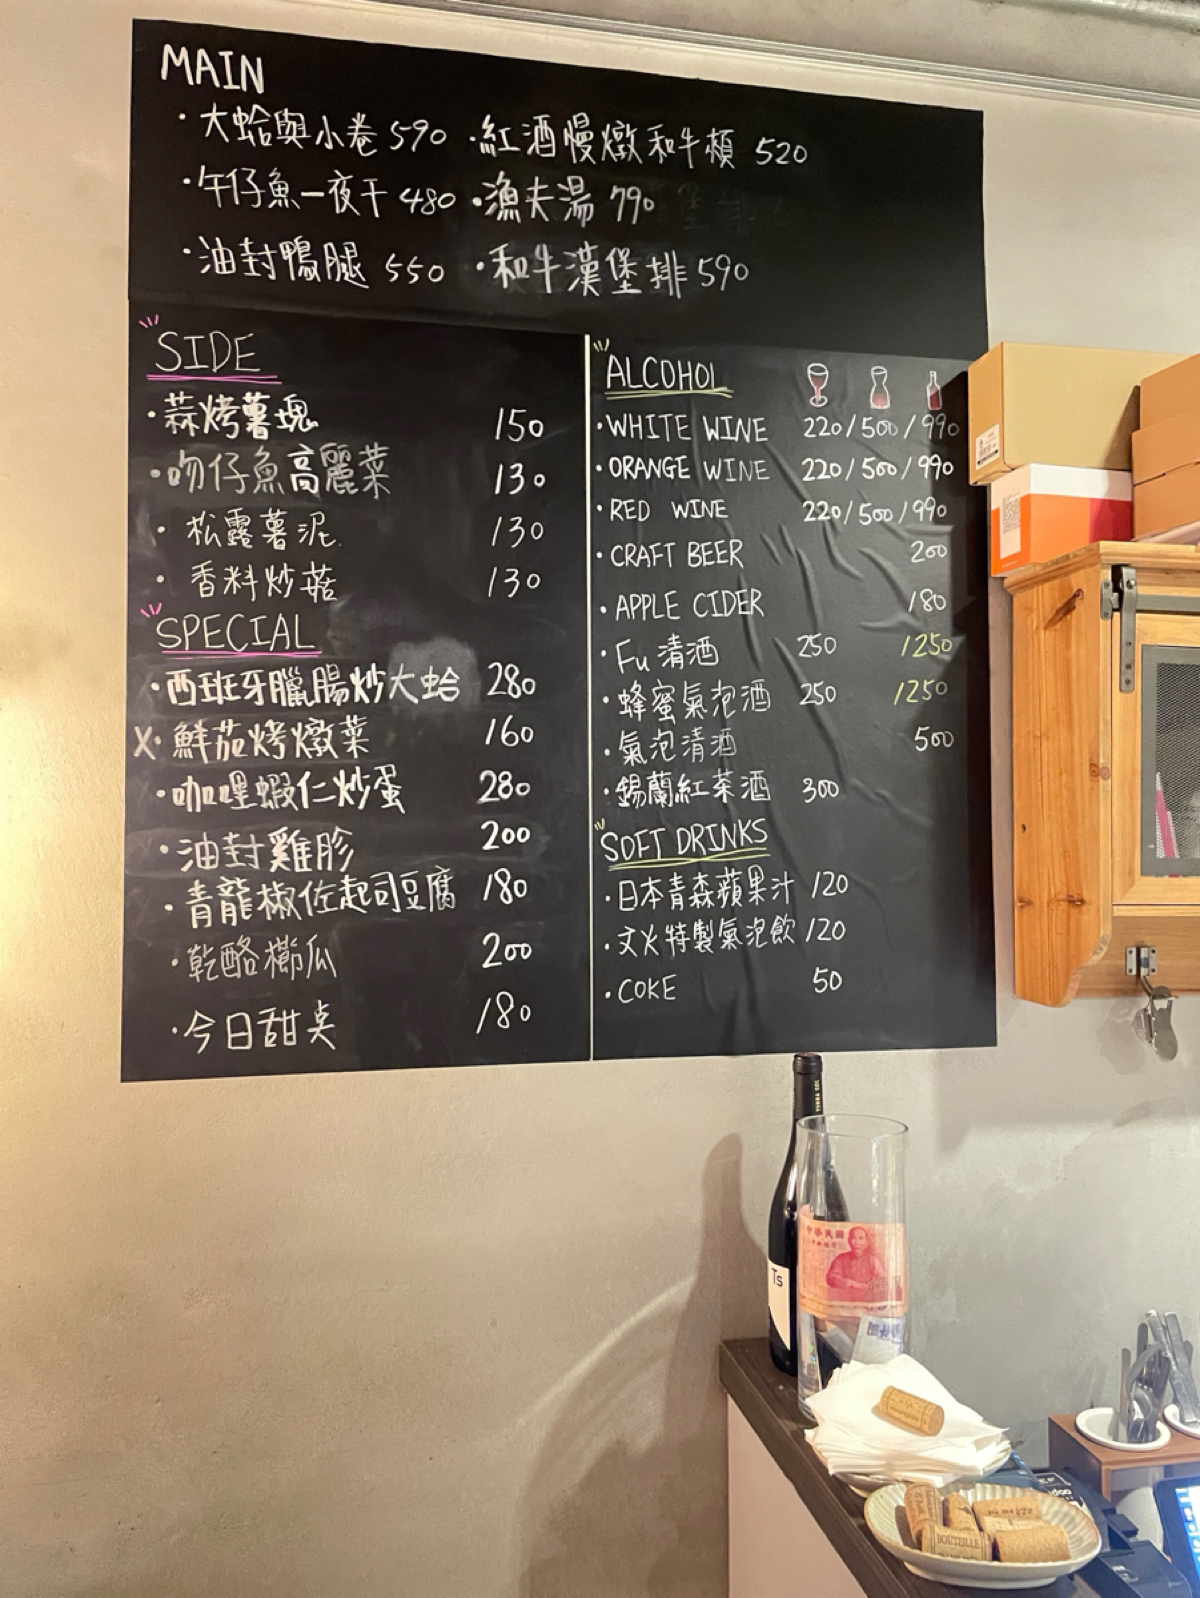 MAIN
·大蛤與小卷 590 ·紅酒慢燉和牛頰 520
·午仔魚一夜干 480 ·漁夫湯 790
·油封鴨腿 550 ·和牛漢堡排 590
SIDE
·蒜烤薯塊 150
·吻仔魚高麗菜 130
·松露薯泥 130
·香料炒菇 130
SPECIAL
·西班牙臘腸炒大蛤 280
X·鮮茄烤燉菜 160
·咖哩蝦仁炒蛋 280
·油封雞胗 200
·青龍椒佐起司豆腐 180
·乾酪櫛瓜 200
·今日甜桌 180
ALCOHOL
·WHITE WINE 220/500/990
·ORANGE WINE 220/500/990
·RED WINE 220/500/990
·CRAFT BEER 200
·APPLE CIDER 180
·Fu 清酒 250 1250
·蜂蜜氣泡酒 250 1250
·氣泡清酒 500
·錫蘭紅茶酒 300
SOFT DRINKS
·日本青森蘋果汁 120
·文火特製氣泡飲 120
·COKE 50
Ts
中華民國
BOUTEILLE